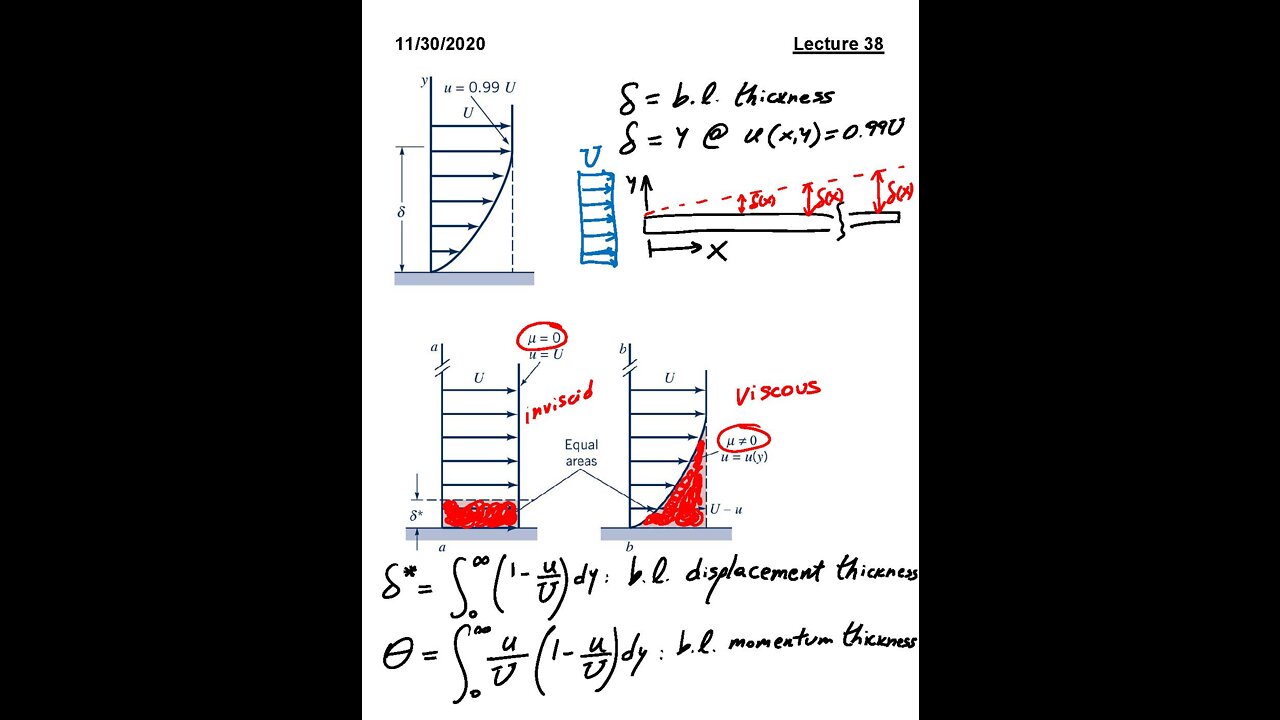 11/30/2020
Lecture 38
y
u = 0.99 U
U
δ
δ = b.l. thickness
δ = y @ u(x,y) = 0.99U
U
y
δ(x)
δ(x)
δ(x)
x
a
μ = 0
u = U
U
inviscid
Equal
areas
δ*
a
b
U
viscous
μ ≠ 0
u = u(y)
U – u
b
δ* = ∫₀^∞ (1 - u/U) dy : b.l. displacement thickness
θ = ∫₀^∞ u/U (1 - u/U) dy : b.l. momentum thickness